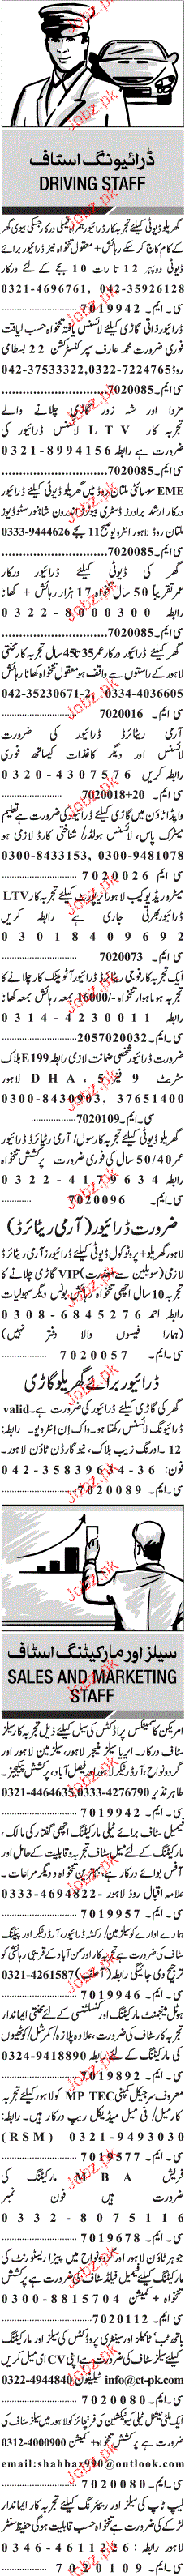 ڈرائیونگ اسٹاف
DRIVING STAFF
گھریلو ڈیوٹی کیلئے تجربہ کار ڈرائیور
ڈیوٹی دوپہر 12 تا رات 10 بجے کے لئے درکار
0321-4696761, 042-35926128
سی۔ایم۔ 7019942
ڈرائیور ذاتی گاڑی کیلئے لائسنس یافتہ تنخواہ حسب لیاقت
فوری ضرورت محمد عارف سپر کنسٹرکشن 22 بسطامی
روڈ 042-37533322,0322-7224765
سی۔ایم۔ 7020085
مزدا اور شہ زور گاڑی چلانے والے
تجربہ کار LTV لائسنس ڈرائیور کی
ضرورت ہے رابطہ 0321-8994156
سی۔ایم۔ 7020085
EME سوسائٹی ملتان روڈ میں گھریلو ڈیوٹی کیلئے ڈرائیور
ملتان روڈ لاہور انٹرویو صبح 11 بجے 0333-9444626
سی۔ایم۔ 7020085
گھر کی ڈیوٹی کیلئے ڈرائیور درکار
عمر تقریباً 50 سال تنخواہ 17 ہزار رہائش + کھانا
رابطہ 0322-8000300
سی۔ایم۔ 7020085
ڈرائیور درکار عمر 35 تا 45 سال تجربہ کار محنتی
لاہور کے راستوں سے واقف ہو معقول تنخواہ کھانا رہائش
042-35230671-2, 0334-4036605
سی ایم۔ 7020016
آرمی ریٹائرڈ ڈرائیور کی ضرورت
لائسنس اور دیگر کاغذات کیساتھ فوری
رابطہ کریں 0320-4307576
سی۔ایم۔ 7020018+20
واپڈا ٹاؤن میں گاڑی کیلئے ڈرائیور کی ضرورت ہے تعلیم
میٹرک پاس، لائسنس ہولڈر، شناختی کارڈ لازمی ہو
0300-8433153, 0300-9481078
سی ایم 7020026
میٹرو ریڈیو کیب لاہور ایئرپورٹ کیلئے تجربہ کار LTV
ڈرائیور بھرتی جاری ہے رابطہ کریں
03018409692
سی ایم۔ 7020073
ایک تجربہ کار فوجی ریٹائرڈ ڈرائیور آٹومیٹک کار چلانے کا
تجربہ ہو ماہوار تنخواہ -/16000 روپے رہائش بمعہ کھانا
رابطہ 0314-4230011
سی ایم۔ 2057020032
ضرورت ڈرائیور شخصی ضمانت لازمی رابطہ E199 بلاک
سٹریٹ 9 فیز 5 DHA لاہور
0300-8430903, 37651400
سی۔ایم۔ 7020109
گھریلو ڈیوٹی کیلئے تجربہ کار سول/آرمی ریٹائرڈ ڈرائیور
عمر 50/40 سال کی فوری ضرورت پرکشش تنخواہ
رابطہ 0322-4179634
سی ایم۔ 7020096
ضرورت ڈرائیور (آرمی ریٹائرڈ)
لاہور گھریلو + پروٹوکول ڈیوٹی کیلئے ڈرائیور آرمی ریٹائرڈ
لازمی (سویلین سے معذرت) VIP گاڑی چلانے کا
تجربہ 10 سال اچھی تنخواہ رہائش بونس دیگر سہولیات
رابطہ احمد 0308-6845276
(ہمارا فیسوں والا دفتر نہیں)
سی۔ایم۔ 7020057
ڈرائیور برائے گھریلو گاڑی
گھر کی گاڑی کیلئے ڈرائیور کی ضرورت ہے۔ valid
ڈرائیونگ لائسنس رکھتا ہو۔ واک اِن انٹرویو۔ رابطہ:
12۔ اورنگ زیب بلاک، نیو گارڈن ٹاؤن لاہور۔
فون: 042-35839634-36
سی۔ایم۔ 7020089
سیلز اور مارکیٹنگ اسٹاف
SALES AND MARKETING
STAFF
امریکن کاسمیٹکس پراڈکٹس کی سیل کیلئے ذیل تجربہ کار سیلز
سٹاف درکار۔ ایریا سیلز منیجر لاہور، سیلزمین لاہور اور
گردونواح، آرڈر ٹیکر لاہور اور فیصل آباد، پرکشش پیکیجز۔
طاہر نذیر 0321-4464635,0333-4276790
سی۔ایم۔ 7019942
فیمیل سٹاف برائے ٹیلی مارکیٹنگ اچھی گفتار کی مالک،
مارکیٹنگ کے لئے میل سٹاف تجربہ و قابلیت کے حامل اور
آفس بوائے درکار ہے، بہترین تنخواہ و دیگر مراعات۔
علامہ اقبال روڈ لاہور۔ 0333-4694822
سی۔ایم۔ 7019957
ہمارے ادارے کو سیلزمین/رکشہ ڈرائیور، آرڈر ٹیکر اور پیکنگ
سٹاف کی ضرورت ہے تجربہ کار اور سمن آباد کے قریبی رہائشی کو
ترجیح دی جائیگی رابطہ (آصف) 0321-4261587
سی۔ایم۔ 7019946
ہوٹل مینجمنٹ مارکیٹنگ اور کنسلٹنسی کے لئے محنتی ایماندار
تجربہ کار سٹاف کی ضرورت، علاوہ پلازہ/کمرشل/کوٹھیوں
کی مارکیٹنگ کے لئے بھی رابطہ 0324-9418890
سی۔ایم۔ 7019892
معروف سرجیکل کمپنی MP TEC کو لاہور کیلئے تجربہ
کار میل/فی میل میڈیکل ریپ درکار ہیں۔ رابطہ:
(RSM) 0321-9493030
سی۔ایم۔ 7019577
فریش MBA مارکیٹنگ کی
ضرورت ہیں فون نمبر
0332-8075116
سی۔ایم۔ 7019678
جوہر ٹاؤن لاہور اور گردونواح میں پیزا ریسٹورنٹ کی
مارکیٹنگ کیلئے فیمیل فیلڈ سٹاف کی ضرورت ہے پرکشش
تنخواہ + کمیشن 0300-8815704
سی۔ایم۔ 7020112
باتھ ٹب، ٹائیلز اور سینٹری پروڈکٹس کی سیلز اور مارکیٹنگ
کیلئے سیلز سٹاف کی ضرورت ہے اپنی CV ای میل کریں
info@ct-pk.com ٹیلیفون 0322-4944840
سی۔ایم۔ 7020080
ایک ملٹی نیشنل ٹیلی کمیونیکیشن کی فرنچائز کو لاہور میں سٹاف کی
ضرورت ہے پرکشش تنخواہ + کمیشن 0312-4000900
email:shahbax990@outlook.com
سی۔ایم۔ 7020080
لیپ ٹاپ کی سیلز اور ریپئرنگ کیلئے تجربہ کار ایماندار
لڑکے کی ضرورت ہے تنخواہ حسب قابلیت ہو گی حفیظ سنٹر
لاہور رابطہ: 0346-4611226
سی۔ایم۔ 7020109